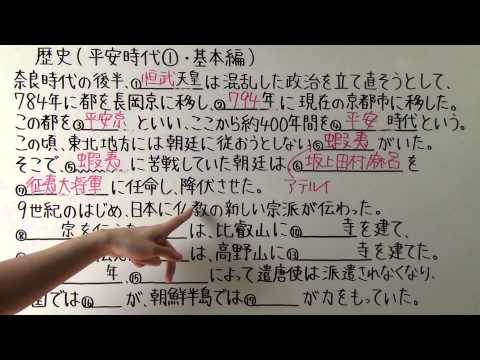 歴史(平安時代①・基本編)
奈良時代の後半、①恒武天皇は混乱した政治を立て直そうとして、
784年に都を長岡京に移し、②794年に現在の京都市に移した。
この都を③平安京といい、ここから約400年間を④平安時代という。
この頃、東北地方には朝廷に従おうとしない⑤蝦夷がいた。
そこで、⑤蝦夷に苦戦していた朝廷は⑥坂上田村麻呂を
⑦征夷大将軍に任命し、降伏させた。アテルイ
9世紀のはじめ、日本に仏教の新しい宗派が伝わった。
⑧宗を伝えは、比叡山に⑩寺を建て、
は、高野山に⑬寺を建てた。
年、⑮によって遣唐使は派遣されなくなり、
国では⑯が、朝鮮半島では⑰が力をもっていた。